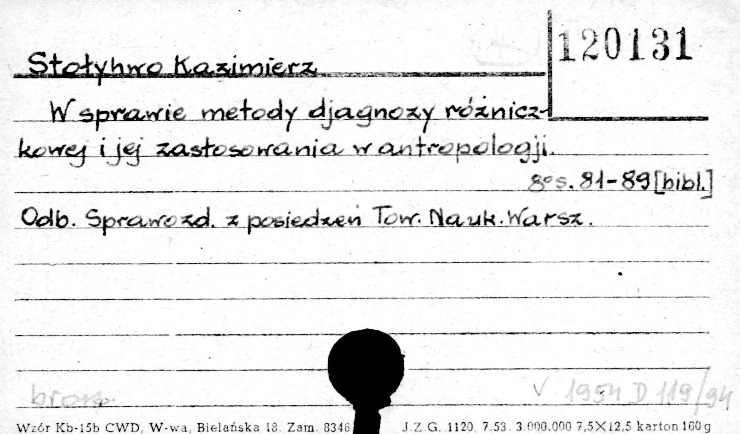 120131
Stołyhwo Kazimierz
W sprawie metody djagnozy różnicz-
kowej i jej zastosowania w antropologji.
8° s. 81-89 [bibl.]
Odb. Sprawozd. z posiedzeń Tow. Nauk. Warsz.
brosz.
V 1954 D 119/94
Wzór Kb-15b CWD, W-wa, Bielańska 18. Zam. 8346
J.Z.G. 1120. 7.53. 3.000.000 7,5×12,5 karton 160 g